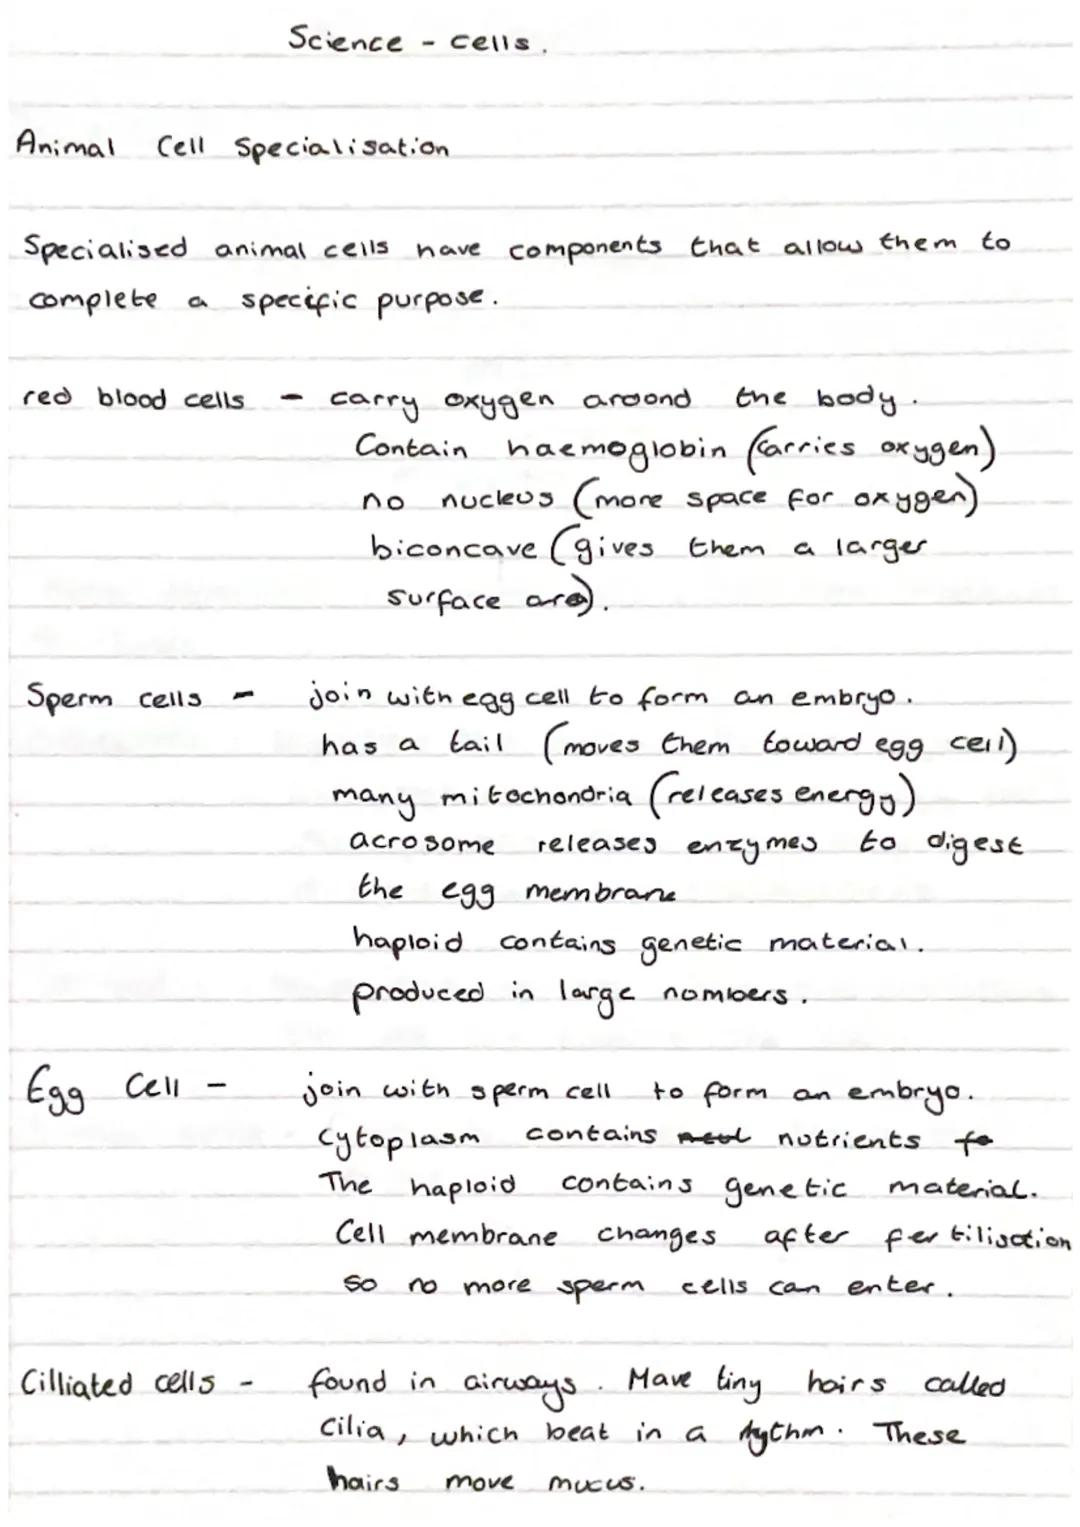 Science - cells.
Animal Cell Specialisation
Specialised animal cells have components that allow them to
complete a specific purpose.
red blood cells - carry oxygen around the body.
Contain haemoglobin (carries oxygen)
no nucleus (more space for oxygen)
biconcave (gives them a larger
surface area).
Sperm cells - join with egg cell to form an embryo.
has a tail (moves them toward egg cell)
many mitochondria (releases energy)
acrosome releases enzymes to digest
the egg membrane
haploid contains genetic material.
produced in large numbers.
Egg Cell - join with sperm cell to form an embryo.
Cytoplasm contains nutrients to
The haploid contains genetic material.
Cell membrane changes after fertilisation
so no more sperm cells can enter.
Cilliated cells - found in airways. Have tiny hairs called
Cilia, which beat in a rythm. These
hairs move mucus.